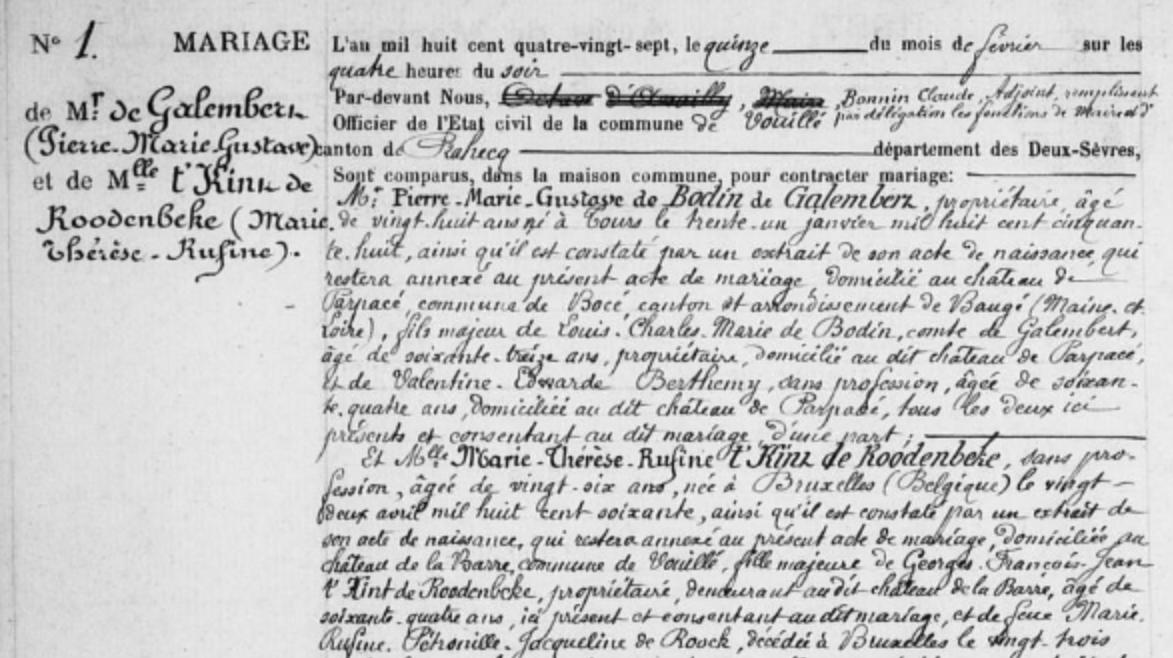 N° 1. MARIAGE
de Mr. de Galembert
(Pierre-Marie-Gustave)
et de Mlle t'Kint de
Roodenbeke (Marie-
Thérèse-Rufine).
L'an mil huit cent quatre-vingt-sept, le quinze du mois de février sur les
quatre heures du soir
Par-devant Nous, Octave d'Auzilly, Maire, Bonnin Claude, Adjoint, remplissant
par délégation les fonctions de Maire et d'
Officier de l'Etat civil de la commune de Vouillé
canton de Prahecq département des Deux-Sèvres,
Sont comparus, dans la maison commune, pour contracter mariage:
Mr. Pierre-Marie-Gustave de Bodin de Galembert, propriétaire, âgé
de vingt-huit ans né à Tours le trente-un janvier mil huit cent cinquan-
te-huit, ainsi qu'il est constaté par un extrait de son acte de naissance, qui
restera annexé au présent acte de mariage, domicilié au château de
Parpacé, commune de Bocé, canton et arrondissement de Baugé (Maine-et-
Loire), fils majeur de Louis-Charles-Marie de Bodin, comte de Galembert,
âgé de soixante-treize ans, propriétaire, domicilié au dit château de Parpacé,
et de Valentine-Edwarde Berthemy, sans profession, âgée de soixan-
te-quatre ans, domiciliée au dit château de Parpacé, tous les deux ici
présents et consentant au dit mariage, d'une part;
Et Mlle Marie-Thérèse-Rufine t'Kint de Roodenbeke, sans pro-
fession, âgée de vingt-six ans, née à Bruxelles (Belgique) le vingt-
deux avril mil huit cent soixante, ainsi qu'il est constaté par un extrait de
son acte de naissance, qui restera annexé au présent acte de mariage, domiciliée au
château de la Barre, commune de Vouillé, fille majeure de Georges-François-Jean
t'Kint de Roodenbeke, propriétaire, demeurant au dit château de la Barre, âgé de
soixante-quatre ans, ici présent et consentant au dit mariage, et de feue Marie-
Rufine-Pétronille-Jacqueline de Roock, décédée à Bruxelles le vingt-trois